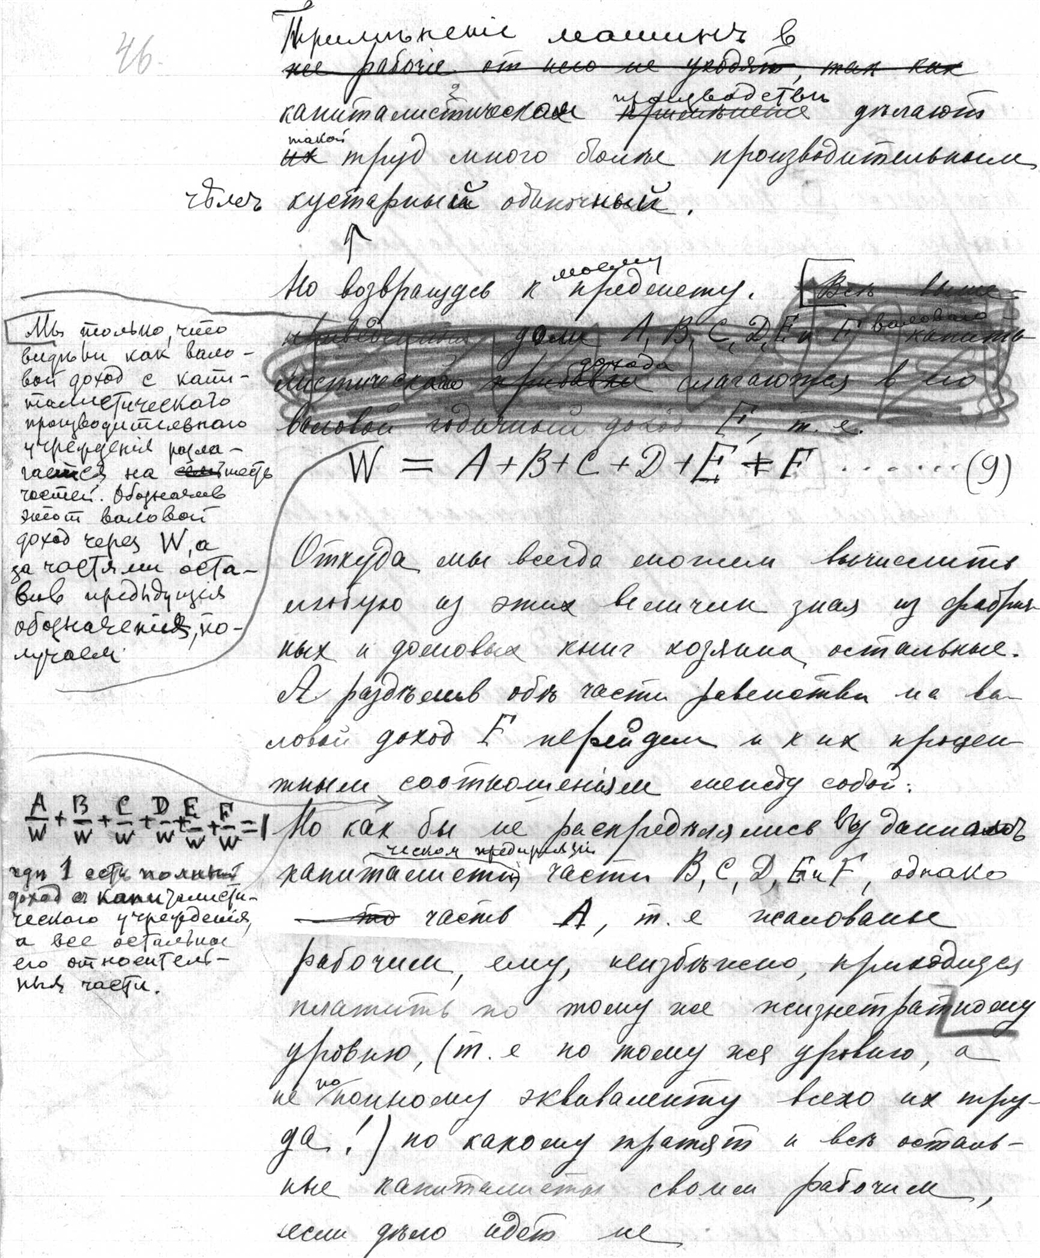 46.
Примѣненіе машинъ в
же рабочіе от него не уходят, так как
капиталистическая производстви примѣненіе дѣлают
такой их труд много болѣе производительным
чѣмъ кустарный одиночный.
Но возвращусь к моему предмету. Всѣ выше-
доли A, B, C, D, E и F валового капита-
листическаго дохода слагаются в его
валовой годичный доход F, т. е.
Мы только, что
видѣли как вало-
вой доход с капи-
талистическаго
производительнаго
учрежденія разла-
гается на шесть
частей. Обозначив
этот валовой
доход через W, а
за частями оста-
вив предыдущія
обозначения, по-
лучаем
W = A + B + C + D + E + F ....... (9)
Откуда мы всегда можем вычислить
любую из этих величин зная из фабрич-
ных и домовых книг хозяина, остальные.
А раздѣлив обѣ части равенства на ва-
ловой доход F перейдем и к их процен-
тным соотношениям между собой:
A/W + B/W + C/W + D/W + E/W + F/W = 1
гдѣ 1 есть полный
доход с капиталисти-
ческаго учреждения,
а все остальное
его относитель-
ныя части.
Но как бы не распредѣлялись въ данномъ
капиталистическом предприятіи части B, C, D, E и F, однако
то часть A, т. е жалованье
рабочим, ему, неизбѣжно, приходится
платить по тому же жизнетратному
уровню, (т. е по тому же уровню, а
не по полному эквиваленту всего их тру-
да!) по какому тратят и всѣ осталь-
ные капиталисты своим рабочим,
если дѣло идет не